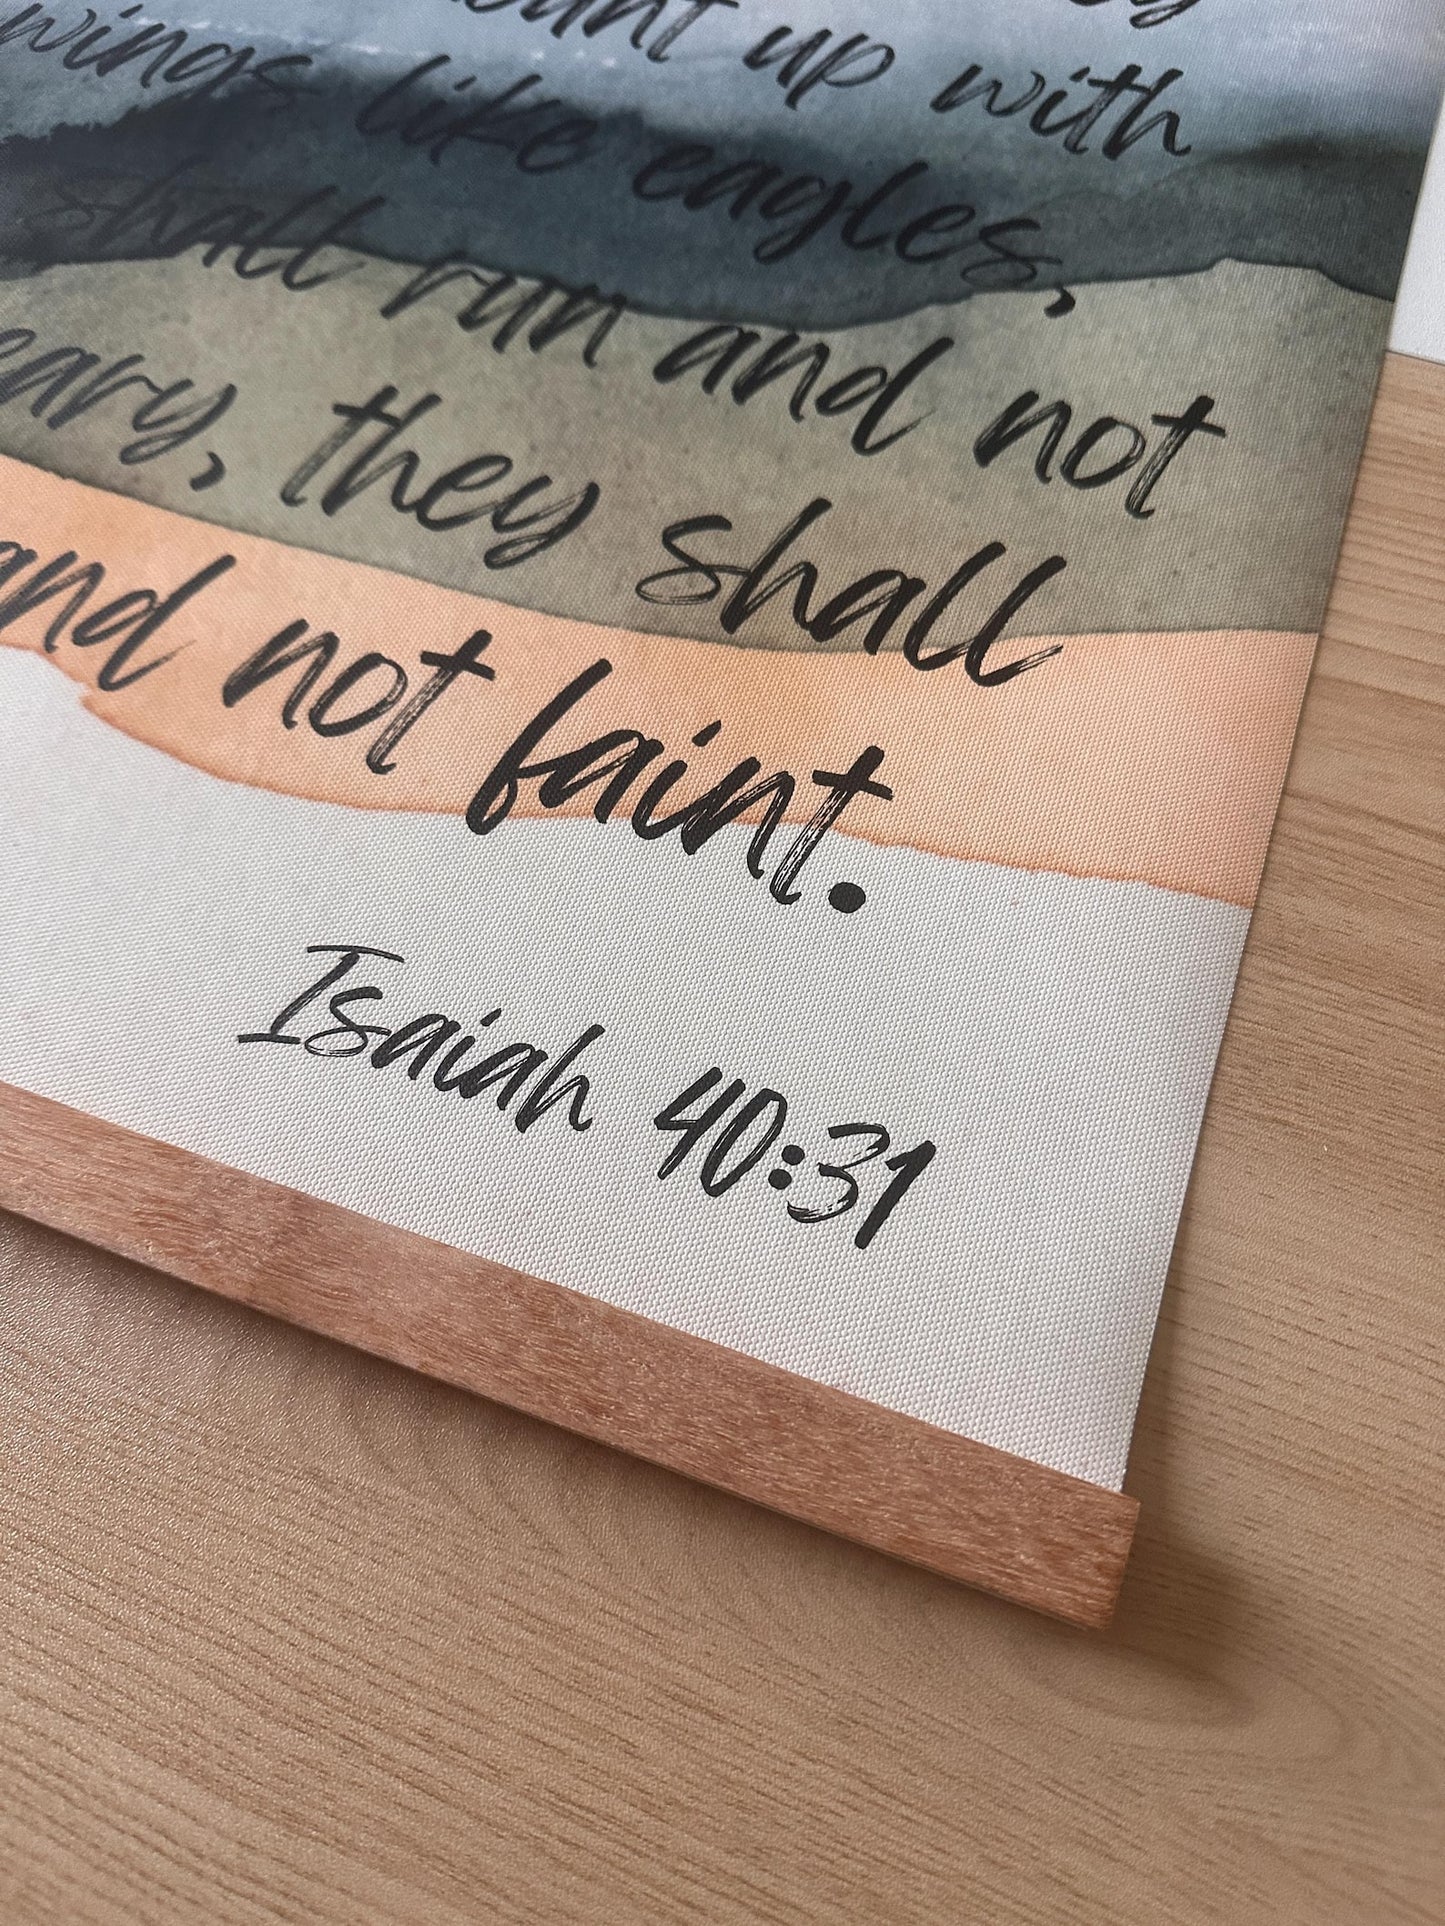 up with
wings like eagles,
shall run and not
they shall
and not faint.
Isaiah 40:31